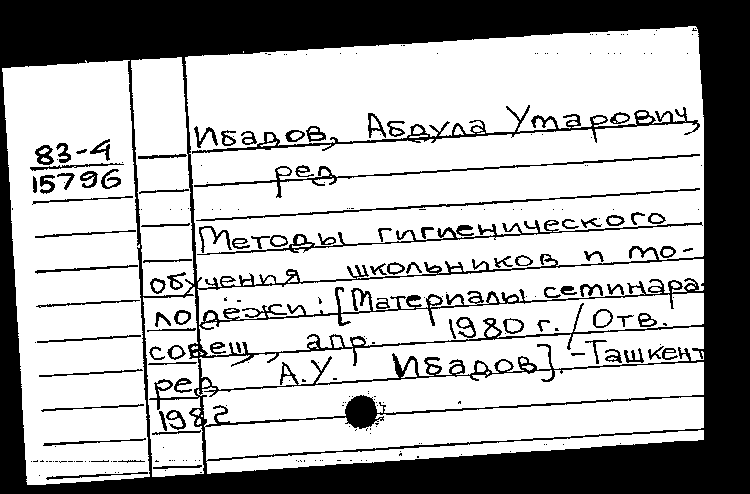 83-4
15796
Ибадов, Абдула Умарович,
ред
Методы гигиенического
обучения школьников и мо-
лодёжи: [Материалы семинара-
совещ., апр. 1980 г. / Отв.
ред А.У. Ибадов]. - Ташкент
1982